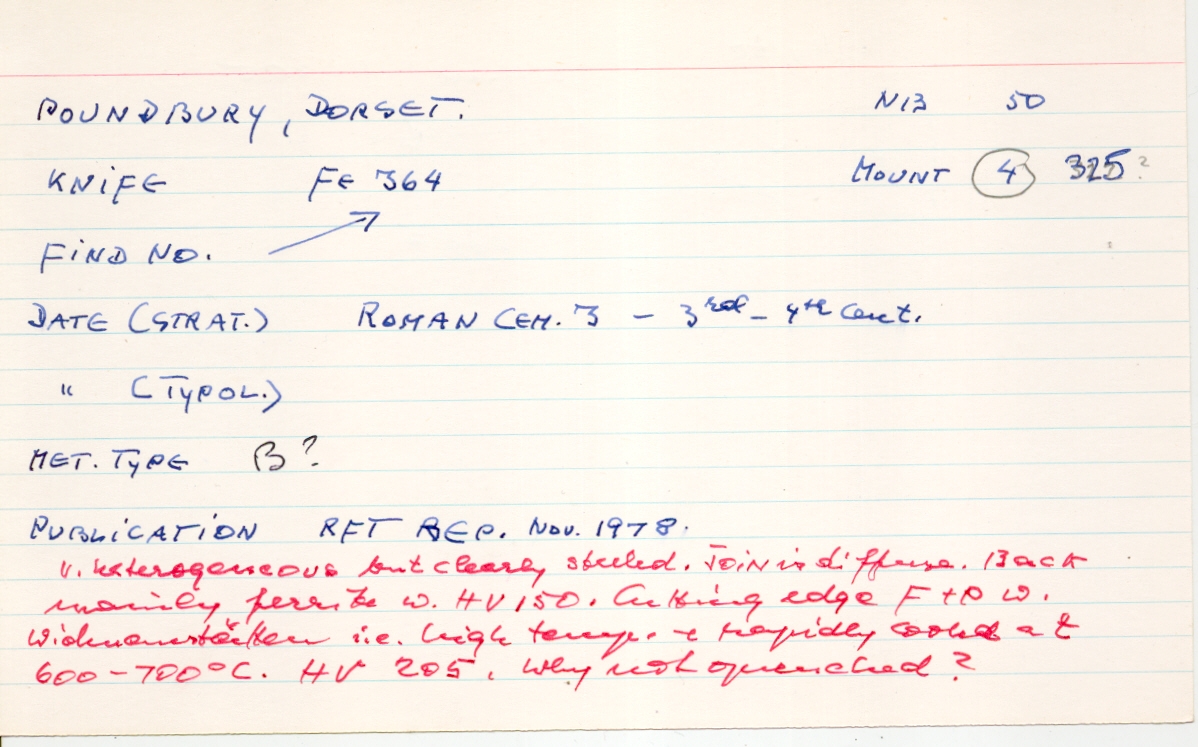 POUNDBURY, DORSET. N13 50
KNIFE Fe 364 MOUNT 4 325?
FIND NO.
DATE (STRAT.) ROMAN CEM. 3 – 3rd – 4th Cent.
" (TYPOL.)
MET. TYPE B?
PUBLICATION RFT REP. NOV. 1978.
v. heterogeneous but clearly steeled. Join is diffuse. Back
mainly ferrite w. HV 150. Cutting edge F+P w.
Widmanstätten i.e. high temp. & rapidly cooled at
600–700°C. HV 205. Why not quenched?